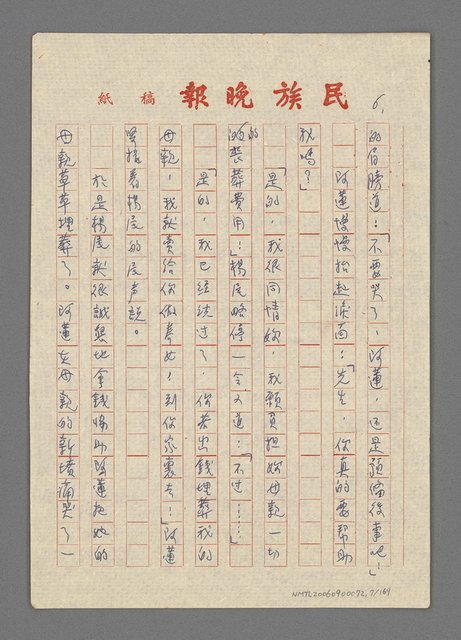 民族晚報 稿紙
6.
的肩膀道：「不要哭了，阿蓮，還是預備後事吧！」
阿蓮慢慢抬起淚面：「先生，你真的要幫助
我嗎？」
「是的，我很同情妳，我願負担妳母親一切
的喪葬費用！」楊尾略停一会又道：「不过……」
「是的，我已經決过了，你若出錢埋葬我的
母親，我就賣給你做養女！到你家裏去！」阿蓮
緊接着楊尾的尾声説。
於是楊尾就很誠懇地拿錢協助阿蓮把她的
母親草草埋葬了。阿蓮在母親的新墳痛哭了一
NMTL20060900072,7/164